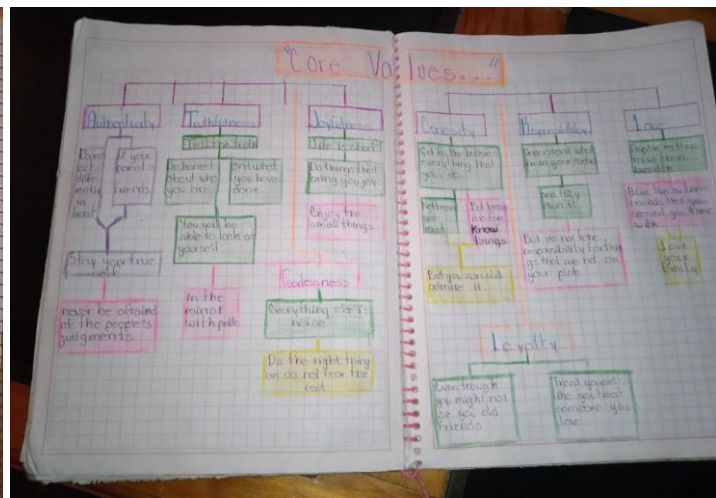 "Core Values..."
Authenticity
Do not
act
diffe
rently
in
front
If your
parents
friends
Stay your true
never be afraind
of the people's
judgments
Truthfulness
Tell the truth
Be honest
about who
you are
And what
you have
done
You will be
able to look at
yourself
In the
mirror
with pride
Joyfulness
Life is short
Do things that
bring you joy
Enjoy the
small things
Fearlessness
Everything else is
noise
Do the right thing
an do not fear the
rest
Curiosity
Get to the bottom
everything that
you do
things
Know
But you can still
admire it
Responsibility
Understand what
is in your control
and fully
own it
But do not take
responsibility for thin
gs that are not on
your plate
Love
Depth matters
more than
Have two or three
friends that you
spend you time
with
Love
your
family
Loyalty
Even though
you might not
see you old
Friends
Treat yourself
like you treat
someone you
love